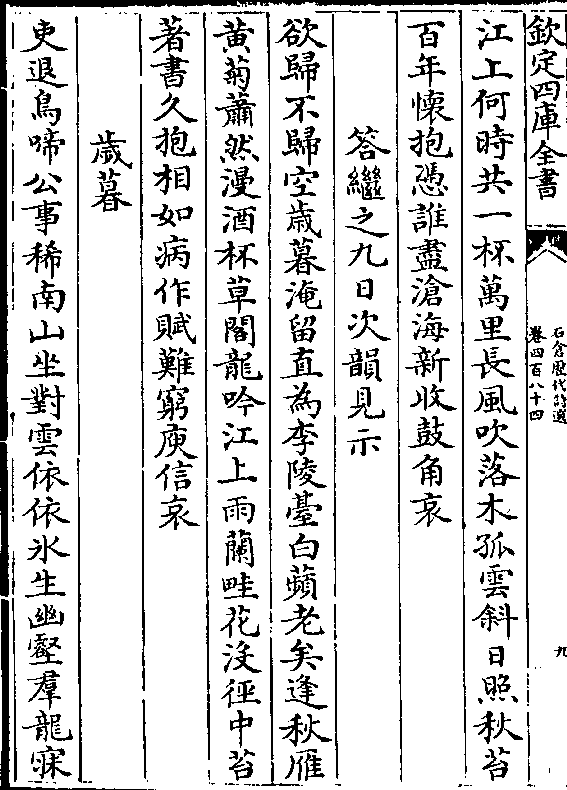 欽定四庫全書
石倉歷代詩選
卷四百八十四
九
江上何時共一杯萬里長風吹落木孤雲斜日照秋苔
百年懷抱憑誰盡滄海新收鼓角哀
答繼之九日次韻見示
欲歸不歸空歲暮淹留直為李陵臺白蘋老矣逢秋雁
黄菊蕭然漫酒杯草閣龍吟江上雨蘭畦花沒徑中苔
著書久抱相如病作賦難窮庾信哀
歲暮
吏退鳥啼公事稀南山坐對雲依依氷生幽壑羣龍寐